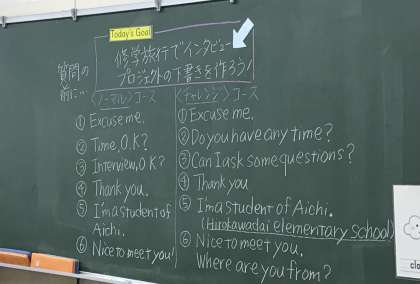 Today's Goal
修学旅行でインタビュー
プロジェクトの下書きを作ろう!
質問の
前に…
〈ノーマル〉コース
① Excuse me.
② Time, O.K?
③ Interview, O.K?
④ Thank you.
⑤ I'm a student of
Aichi.
⑥ Nice to meet you!
〈チャレンジ〉コース
① Excuse me.
② Do you have any time?
③ Can I ask some questions?
④ Thank you
⑤ I'm a student of Aichi.
(Hirokawadai elementary school)
⑥ Nice to meet you.
Where are you from?